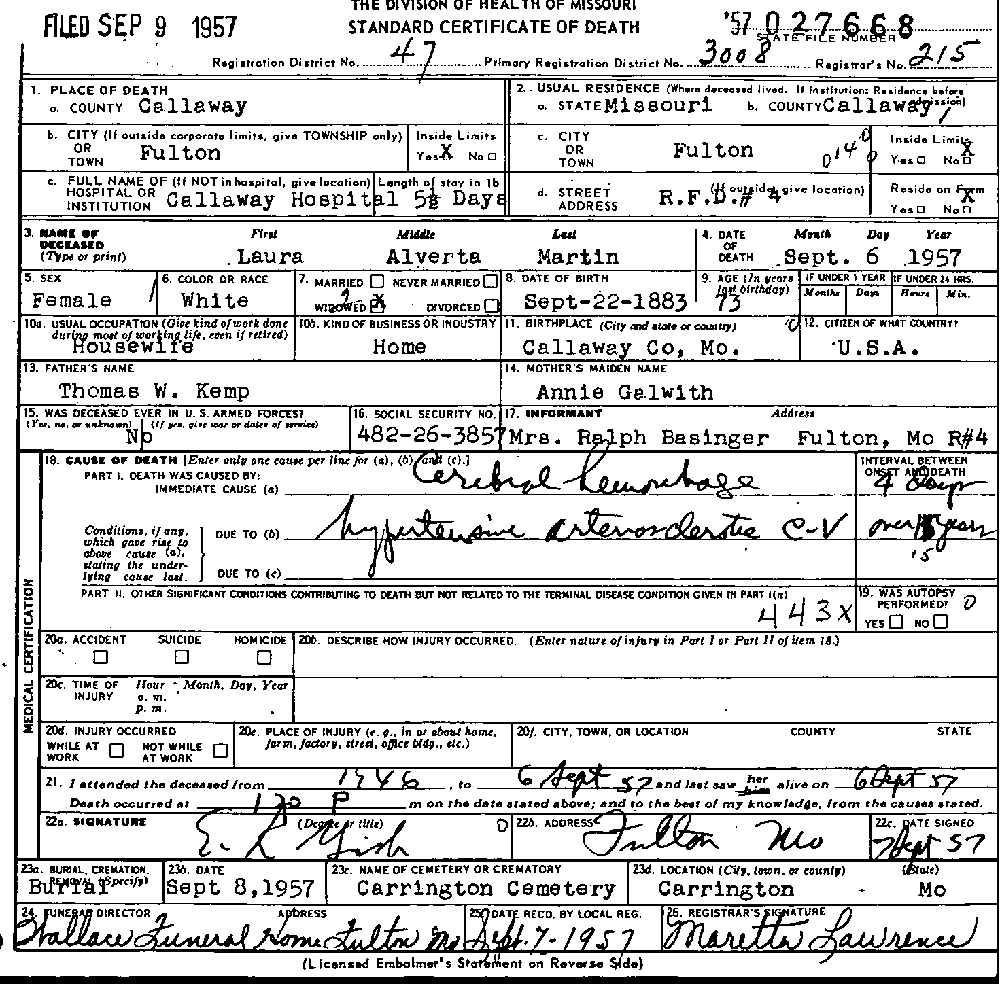 THE DIVISION OF HEALTH OF MISSOURI
FILED SEP 9 1957 STANDARD CERTIFICATE OF DEATH '57 027668
STATE FILE NUMBER
Registration District No. 47 Primary Registration District No. 3008 Registrar's No. 215
1. PLACE OF DEATH 2. USUAL RESIDENCE (Where deceased lived. If institution: Residence before admission)
a. COUNTY Callaway a. STATE Missouri b. COUNTY Callaway
b. CITY (If outside corporate limits, give TOWNSHIP only) OR TOWN Fulton Inside Limits Yes X No □
c. CITY OR TOWN Fulton 0140 Inside Limits Yes □ No X
c. FULL NAME OF (If NOT in hospital, give location) HOSPITAL OR INSTITUTION Callaway Hospital Length of stay in 1b 5½ Days
d. STREET ADDRESS (If outside, give location) R.F.D.# 4 Reside on Farm Yes □ No X
3. NAME OF DECEASED (Type or print) First Laura Middle Alverta Last Martin
4. DATE OF DEATH Month Day Year Sept. 6 1957
5. SEX Female
6. COLOR OR RACE White
7. MARRIED □ NEVER MARRIED □ WIDOWED X DIVORCED □
8. DATE OF BIRTH Sept-22-1883
9. AGE (In years last birthday) 73 IF UNDER 1 YEAR Months Days IF UNDER 24 HRS. Hours Min.
10a. USUAL OCCUPATION (Give kind of work done during most of working life, even if retired) Housewife
10b. KIND OF BUSINESS OR INDUSTRY Home
11. BIRTHPLACE (City and state or country) Callaway Co, Mo.
12. CITIZEN OF WHAT COUNTRY? U.S.A.
13. FATHER'S NAME Thomas W. Kemp
14. MOTHER'S MAIDEN NAME Annie Galwith
15. WAS DECEASED EVER IN U. S. ARMED FORCES? (Yes, no, or unknown) (If yes, give war or dates of service) No
16. SOCIAL SECURITY NO. 482-26-3857
17. INFORMANT Address Mrs. Ralph Basinger Fulton, Mo R#4
MEDICAL CERTIFICATION
18. CAUSE OF DEATH [Enter only one cause per line for (a), (b) and (c).] INTERVAL BETWEEN ONSET AND DEATH
PART I. DEATH WAS CAUSED BY:
IMMEDIATE CAUSE (a) Cerebral hemorrhage 4 days
Conditions, if any, which gave rise to above cause (a), stating the underlying cause last.
DUE TO (b) hypertensive arteriosclerotic C-V over 15 years
'5
DUE TO (c)
PART II. OTHER SIGNIFICANT CONDITIONS CONTRIBUTING TO DEATH BUT NOT RELATED TO THE TERMINAL DISEASE CONDITION GIVEN IN PART I(a)
443X
19. WAS AUTOPSY PERFORMED? 0 YES □ NO □
20a. ACCIDENT □ SUICIDE □ HOMICIDE □
20b. DESCRIBE HOW INJURY OCCURRED. (Enter nature of injury in Part I or Part II of item 18.)
20c. TIME OF INJURY Hour Month, Day, Year a. m. p. m.
20d. INJURY OCCURRED WHILE AT WORK □ NOT WHILE AT WORK □
20e. PLACE OF INJURY (e. g., in or about home, farm, factory, street, office bldg., etc.)
20f. CITY, TOWN, OR LOCATION COUNTY STATE
21. I attended the deceased from 1946, to 6 Sept 57 and last saw her him alive on 6 Sept 57
Death occurred at 1 30 P m on the date stated above; and to the best of my knowledge, from the causes stated.
22a. SIGNATURE (Degree or title) E. R. Gish
22b. ADDRESS Fulton Mo
22c. DATE SIGNED 7 Sept 57
23a. BURIAL, CREMATION, REMOVAL (Specify) Burial
23b. DATE Sept 8,1957
23c. NAME OF CEMETERY OR CREMATORY Carrington Cemetery
23d. LOCATION (City, town, or county) (State) Carrington Mo
24. FUNERAL DIRECTOR ADDRESS Wallace Funeral Home Fulton Mo
25. DATE RECD. BY LOCAL REG. Sept. 7-1957
26. REGISTRAR'S SIGNATURE Maretta Lawrence
(Licensed Embalmer's Statement on Reverse Side)